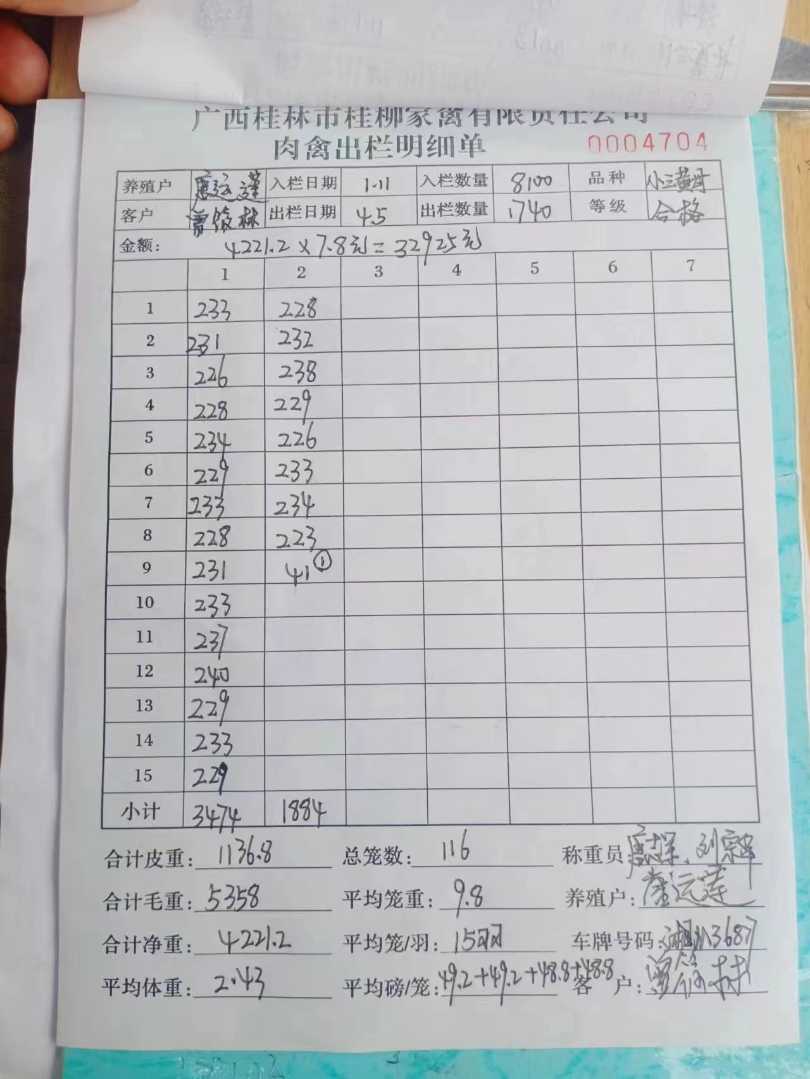 广西桂林市桂柳家禽有限责任公司
肉禽出栏明细单 0004704
养殖户 入栏日期 1.11 入栏数量 8100 品种
客户 出栏日期 4.5 出栏数量 1740 等级 合格
金额: 4221.2 × 7.8元 = 32925元
1 2 3 4 5 6 7
1 233 228
2 231 232
3 226 238
4 228 229
5 234 226
6 229 233
7 233 234
8 228 223
9 231 41①
10 233
11 237
12 240
13 229
14 233
15 229
小计 3474 1884
合计皮重: 1136.8 总笼数: 116 称重员:
合计毛重: 5358 平均笼重: 9.8 养殖户:
合计净重: 4221.2 平均笼/羽: 15羽 车牌号码:
平均体重: 2.43 平均磅/笼: 49.2+49.2+48.8+48.8 客户: